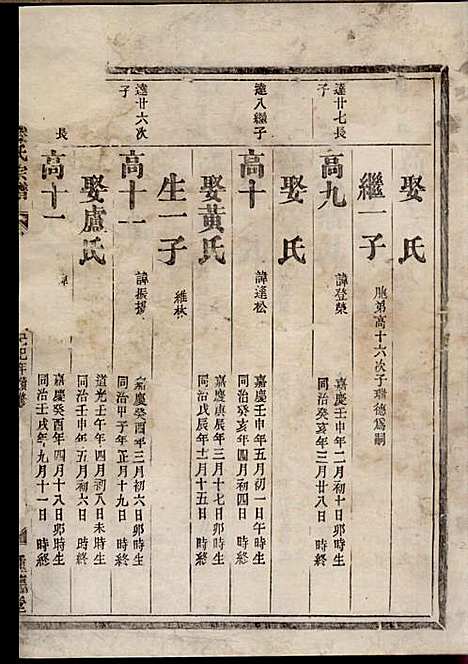 娶 氏
繼一子 胞弟高十六次子
達廿七長子
高九 諱登榮 嘉慶壬申年二月初十日卯時生 同治癸亥年三月廿八日 時終
娶 氏
達八繼子
高十 諱逢松 嘉慶壬申年五月初一日午時生 同治癸亥年四月初四日 時終
娶黃氏 嘉慶庚辰年三月十七日卯時生 同治戊辰年十二月十五日 時終
生一子 維林
達廿六次子
高十一 諱振揚 嘉慶癸酉年三月初六日卯時生 同治甲子年正月十九日 時終
娶盧氏 道光壬午年四月初八日未時生 同治壬申年五月初六日 時終
長
嘉慶癸酉年四月十八日卯時生 同治壬戌年九月十一日 時終
氏宗譜